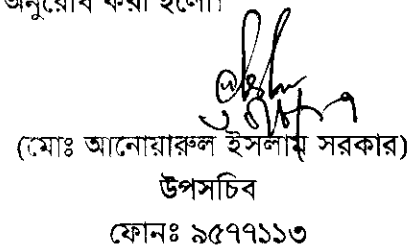 অনুরোধ করা হলো।
(মোঃ আনোয়ারুল ইসলাম সরকার)
উপসচিব
ফোনঃ ৯৫৭৭১১৩